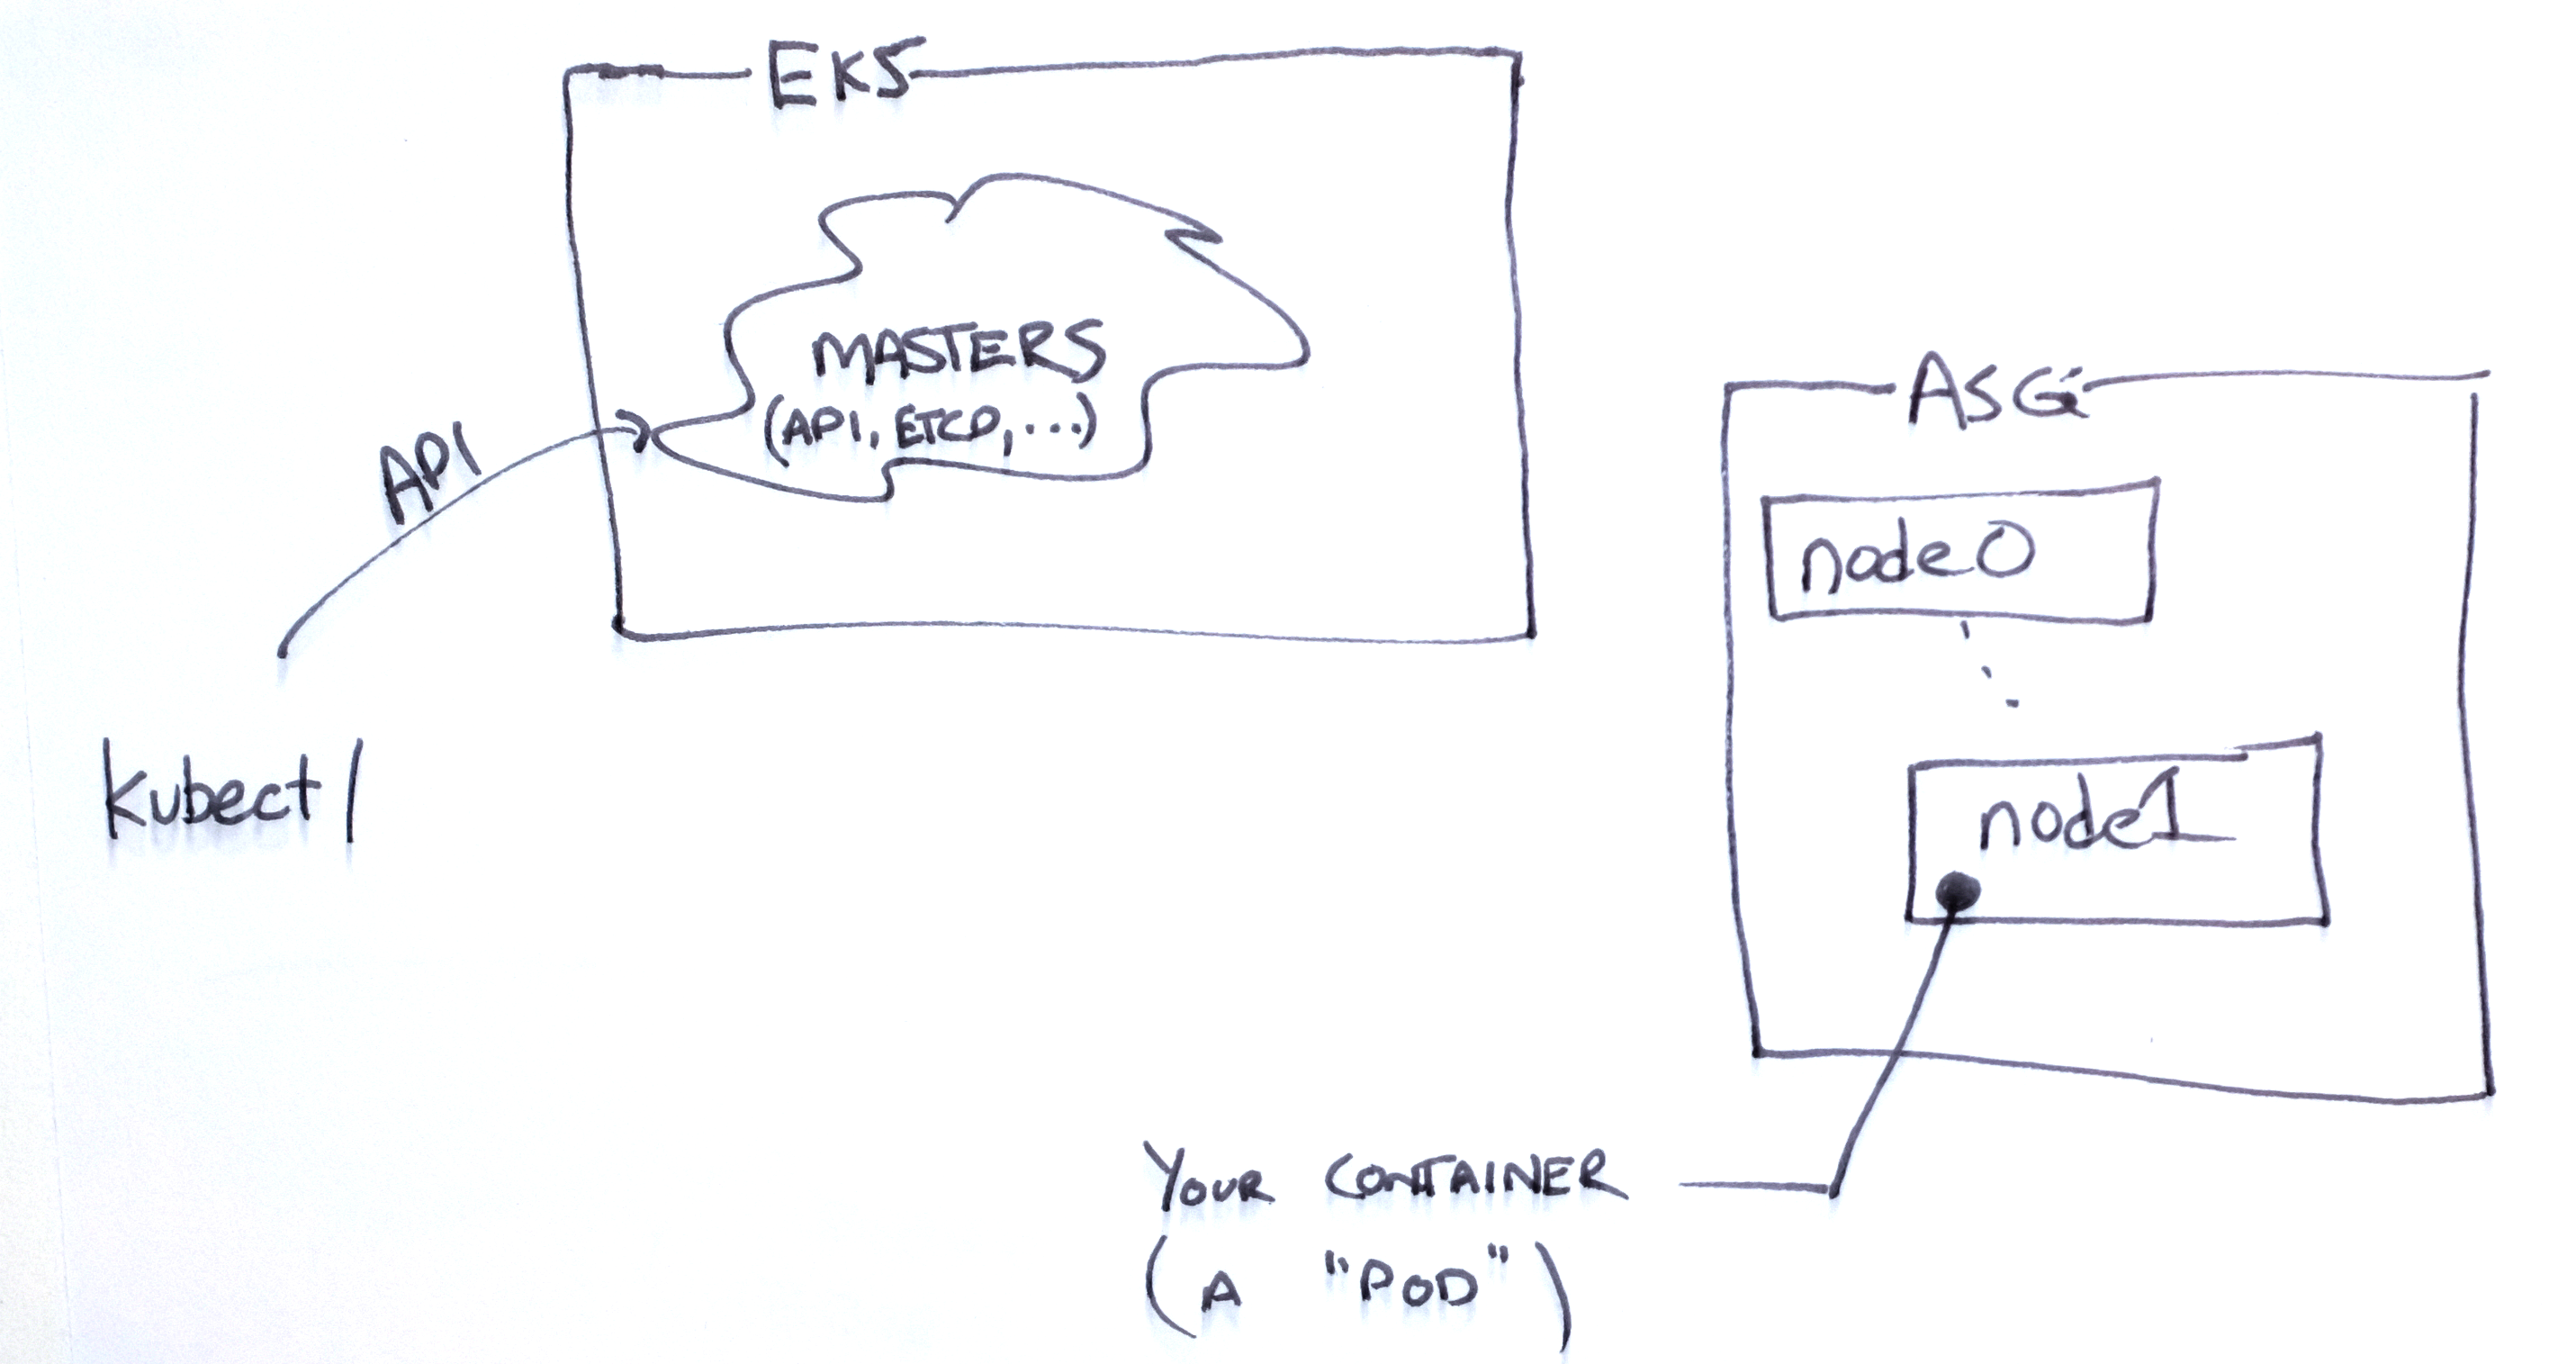 EKS
MASTERS
(API, ETCD, ...)
API
kubectl
ASG
node0
node1
YOUR CONTAINER
(A "POD")